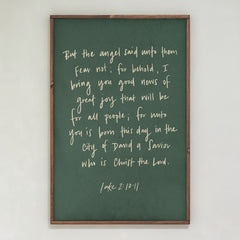 But the angel said unto them
fear not, for behold, I
bring you good news of
great joy that will be
for all people; for unto
you is born this day in the
City of David a Savior
who is Christ the Lord.
Luke 2:10-11